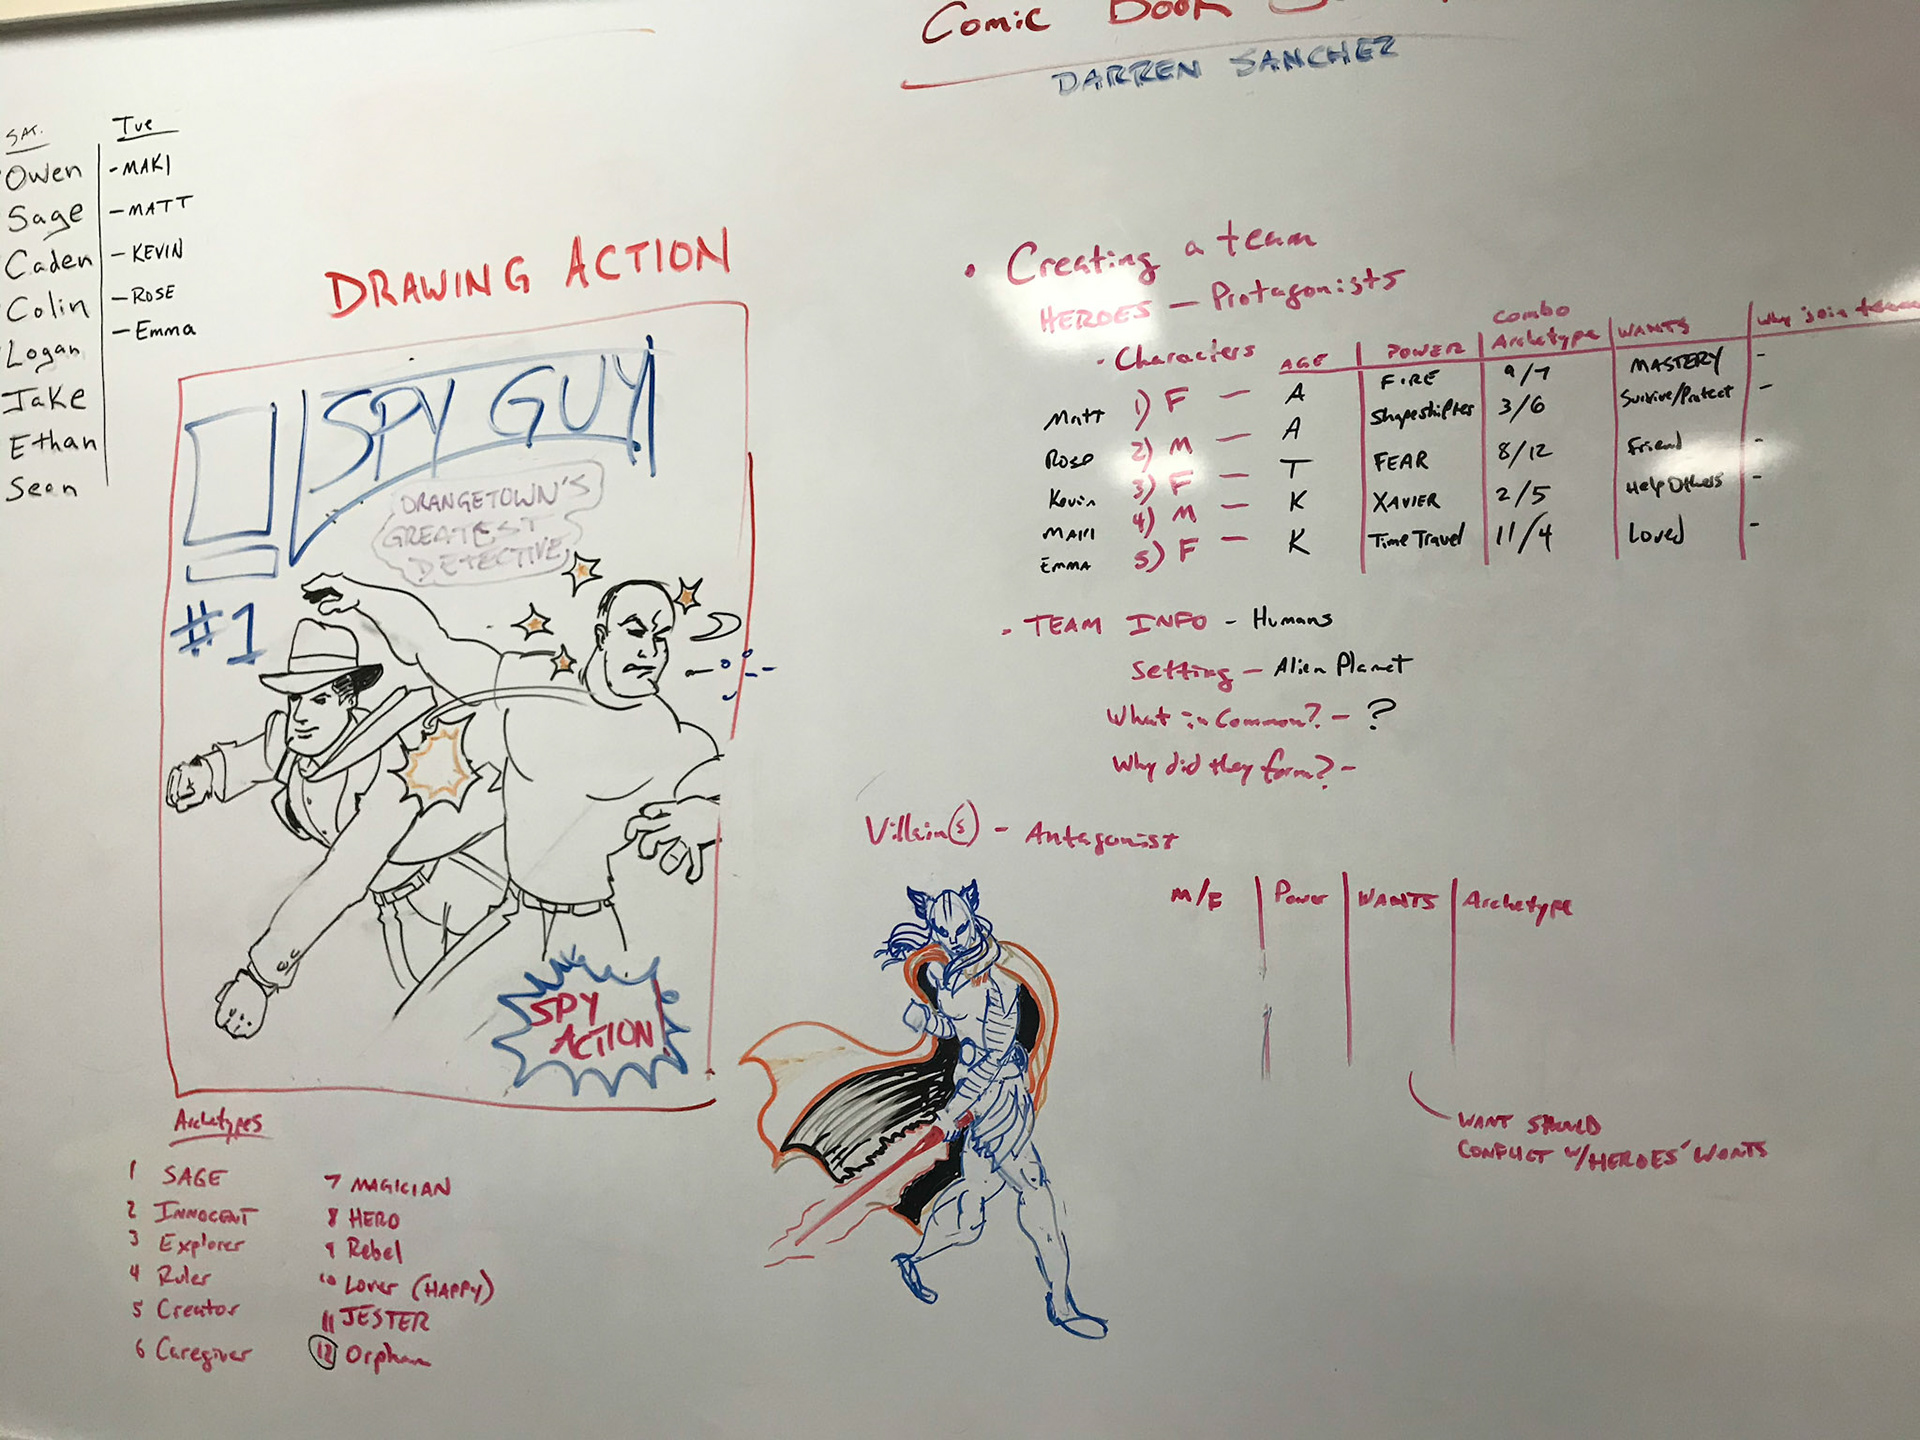 Comic Book
DARREN SANCHEZ
SAT.
Owen
Sage
Caden
Colin
Logan
Jake
Ethan
Sean
Tue
-MAKI
-MATT
-KEVIN
-ROSE
-Emma
DRAWING ACTION
SPY GUY
ORANGETOWN'S
GREATEST
DETECTIVE
#1
SPY
ACTION!
Archetypes
1 SAGE
2 INNOCENT
3 Explorer
4 Ruler
5 Creator
6 Caregiver
7 MAGICIAN
8 HERO
9 Rebel
10 Lover (HAPPY)
11 JESTER
12 Orphan
• Creating a team
HEROES - Protagonists
- Characters AGE POWER Combo Archetype WANTS Why join team
Matt 1) F - A FIRE 9/7 MASTERY -
Rose 2) M - A Shapeshifter 3/6 Survive/Protect -
Kevin 3) F - T FEAR 8/12 Friend -
MAKI 4) M - K XAVIER 2/5 Help Others -
EMMA 5) F - K Time Travel 11/4 Loved -
- TEAM INFO - Humans
Setting - Alien Planet
What in Common? - ?
Why did they form? -
Villain(s) - Antagonist
M/F Power WANTS Archetype
WANT SHOULD
CONFLICT w/HEROES' WANTS